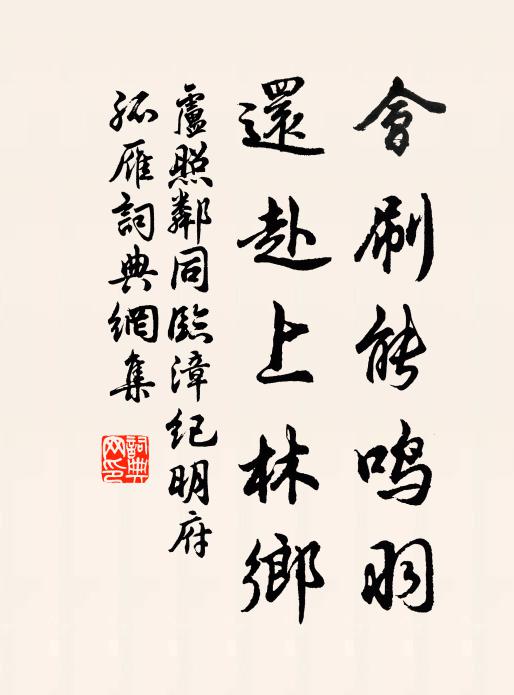 會刷能鳴羽
還赴上林鄉
盧照鄰同臨漳紀明府
孤雁詞典網集
詞典
网印